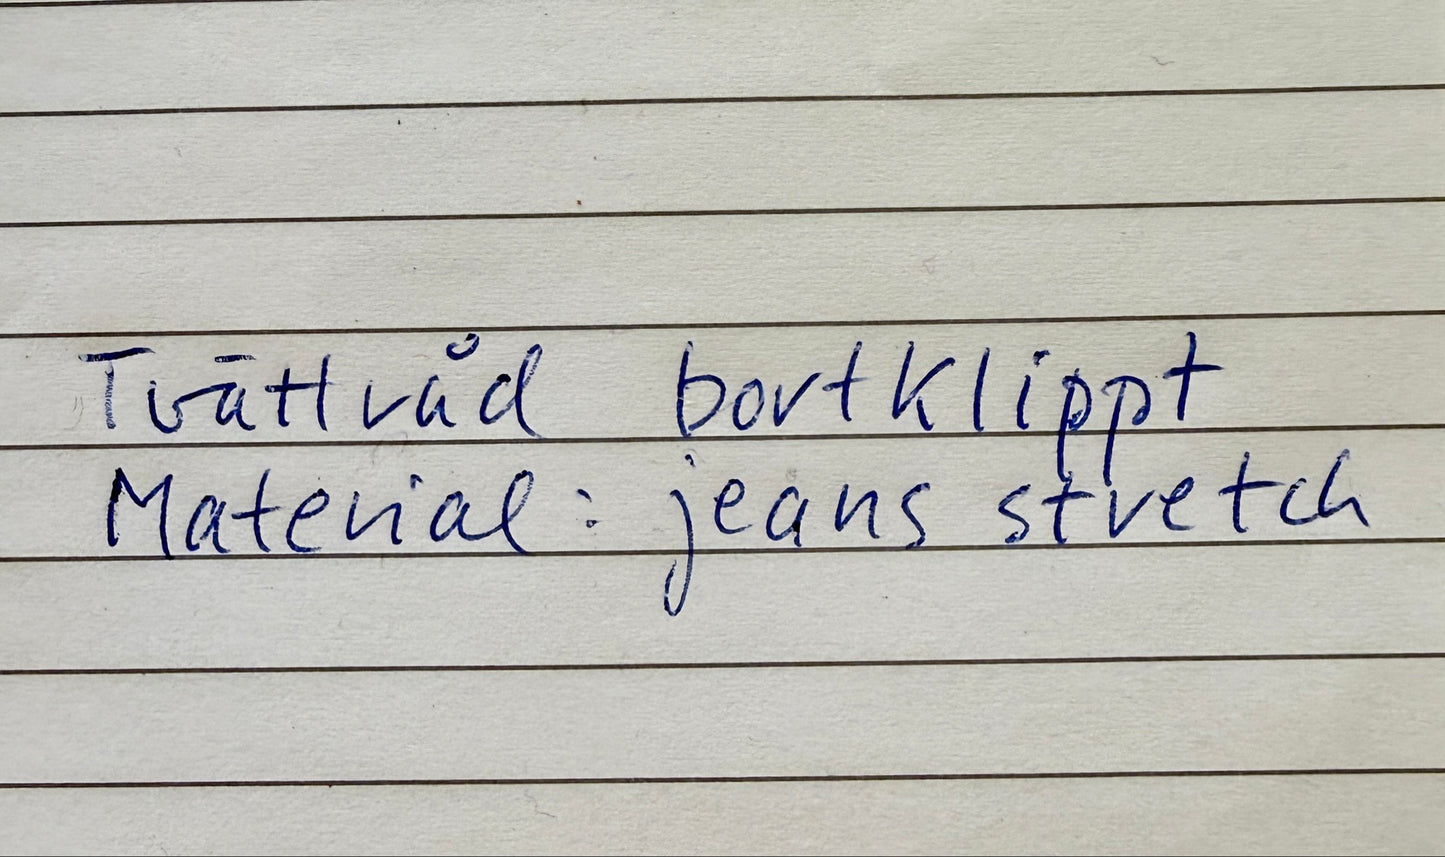 Tvättråd bortklippt
Material: jeans stretch